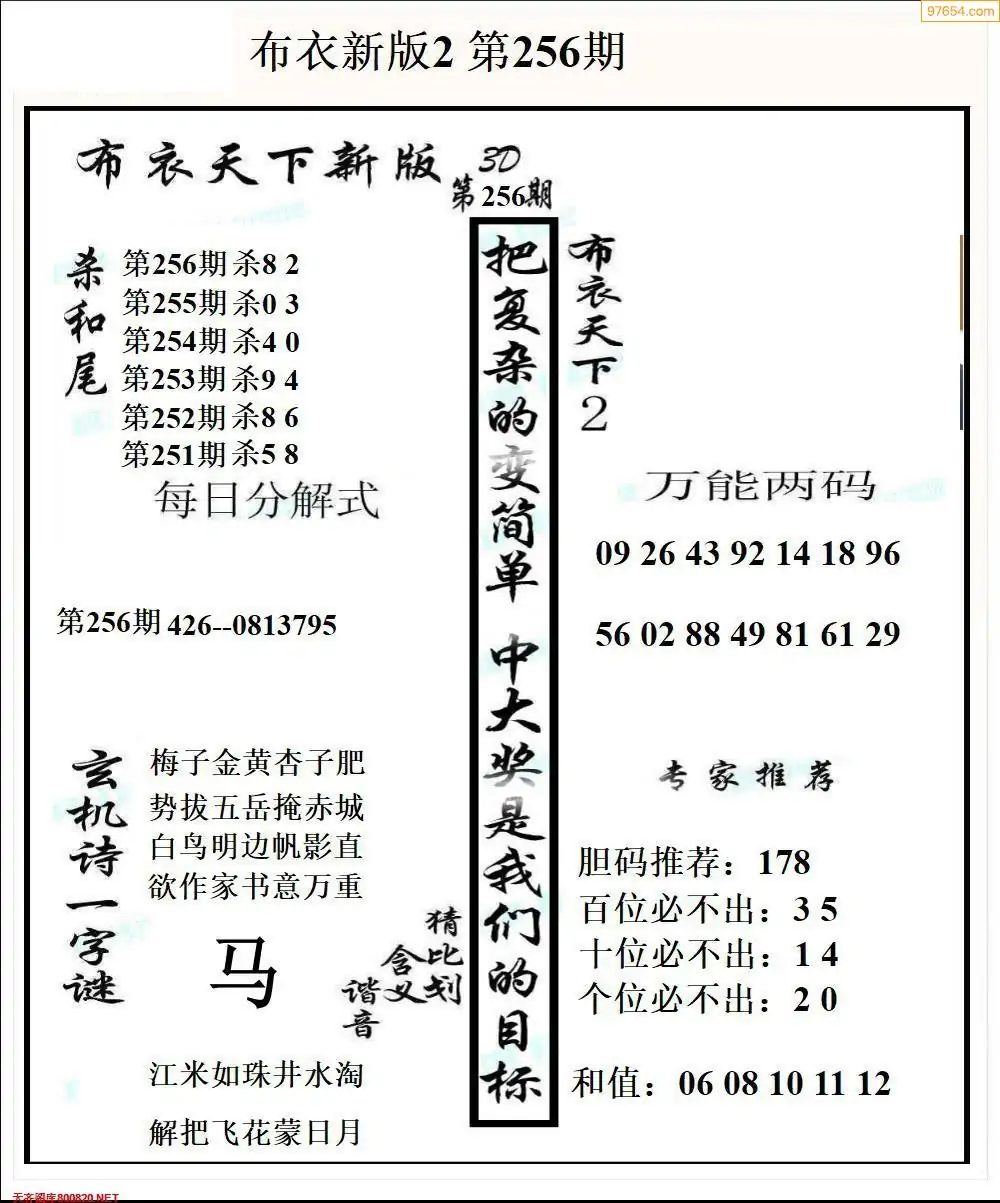 97654.com
布衣新版2 第256期
布衣天下新版
3D
第256期
杀和尾
第256期杀8 2
第255期杀0 3
第254期杀4 0
第253期杀9 4
第252期杀8 6
第251期杀5 8
每日分解式
第256期 426--0813795
玄机诗一字谜
梅子金黄杏子肥
势拔五岳掩赤城
白鸟明边帆影直
欲作家书意万重
马
猜比划
含义
谐音
江米如珠井水淘
解把飞花蒙日月
把复杂的变简单 中大奖是我们的目标
布衣天下2
万能两码
09 26 43 92 14 18 96
56 02 88 49 81 61 29
专家推荐
胆码推荐：178
百位必不出：3 5
十位必不出：1 4
个位必不出：2 0
和值：06 08 10 11 12
天齐图库800820.NET